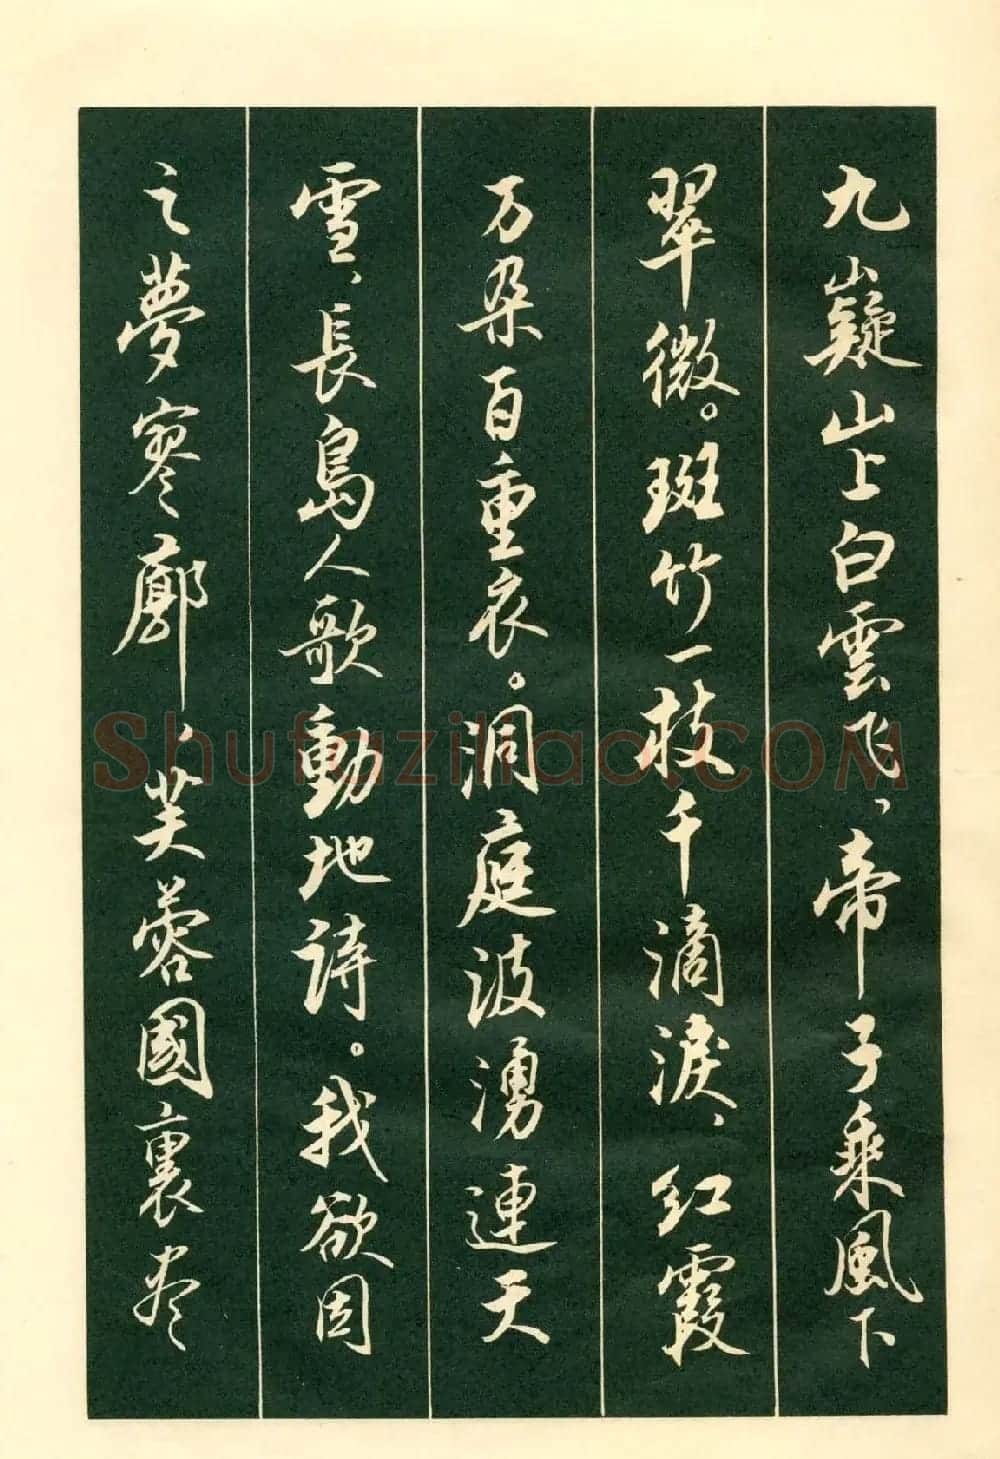 九嶷山上白雲飞、帝子乘風下
翠微。斑竹一枝千滴淚、红霞
万朵百重衣。洞庭波湧連天
雪、長島人歌動地詩。我欲因
之夢寥廓、芙蓉國裏尽
Shufaziliao.COM